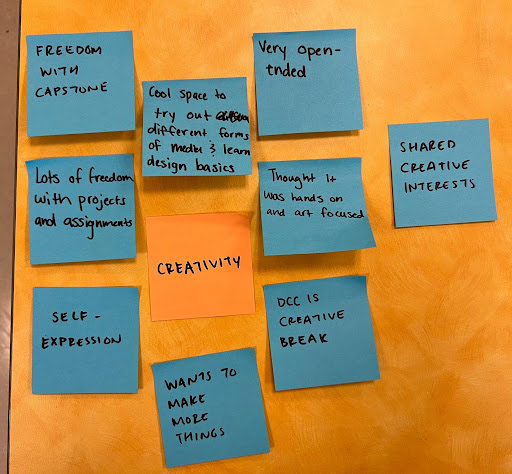 FREEDOM
WITH
CAPSTONE
Cool space to
try out
different forms
of media & learn
design basics
Very open-
ended
SHARED
CREATIVE
INTERESTS
Lots of freedom
with projects
and assignments
Thought it
was hands on
and art focused
CREATIVITY
SELF-
EXPRESSION
DCC IS
CREATIVE
BREAK
WANTS TO
MAKE
MORE
THINGS